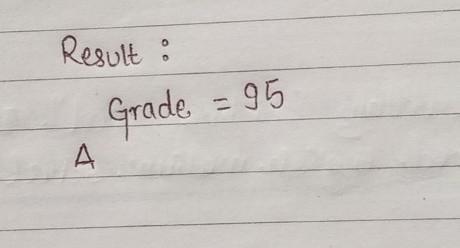 Result :
Grade = 95
A